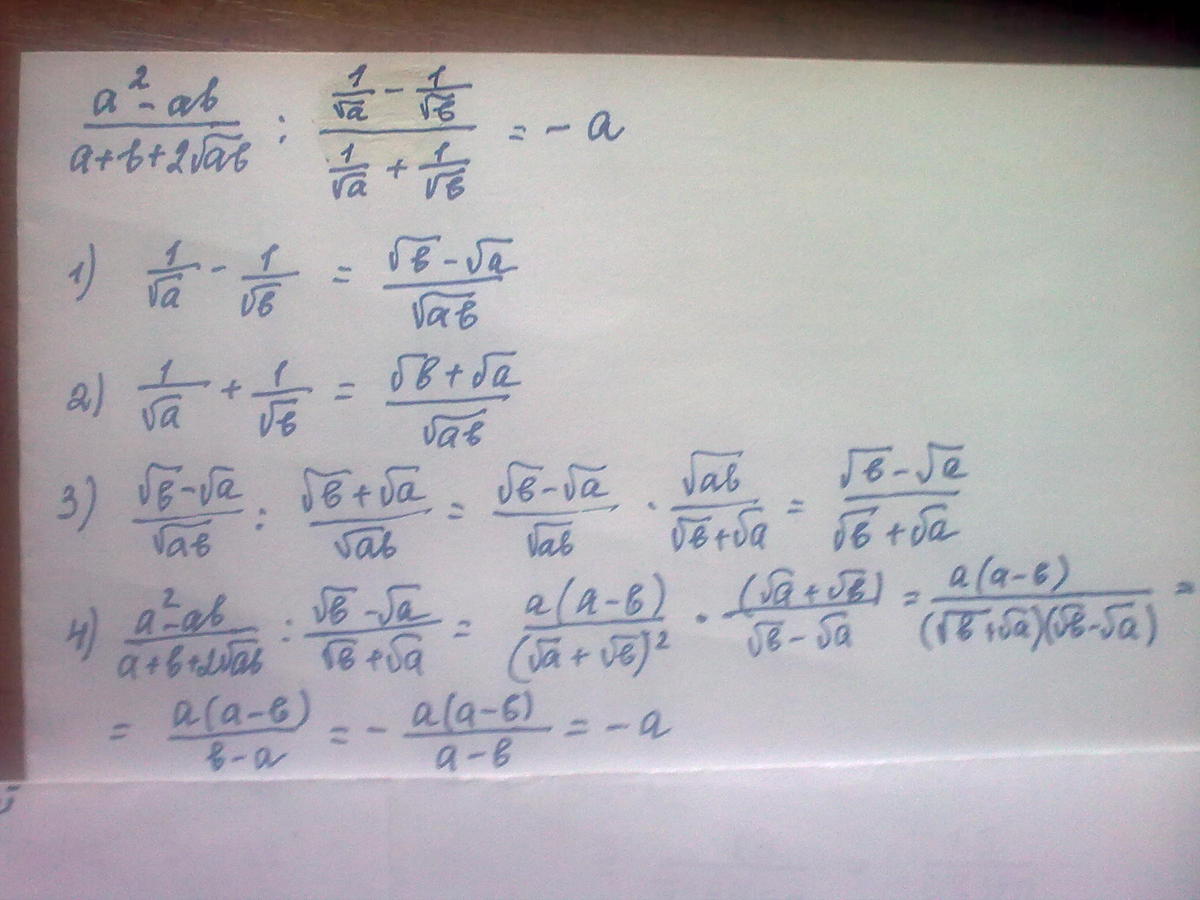 (a² - ab)/(a + b + 2√ab) : (1/√a - 1/√b)/(1/√a + 1/√b) = - a
1) 1/√a - 1/√b = (√b - √a)/√ab
2) 1/√a + 1/√b = (√b + √a)/√ab
3) (√b - √a)/√ab : (√b + √a)/√ab = (√b - √a)/√ab · √ab/(√b + √a) = (√b - √a)/(√b + √a)
4) (a² - ab)/(a + b + 2√ab) : (√b - √a)/(√b + √a) = a(a - b)/(√a + √b)² · (√a + √b)/(√b - √a) = a(a - b)/(√b + √a)(√b - √a) =
= a(a - b)/(b - a) = - a(a - b)/(a - b) = - a